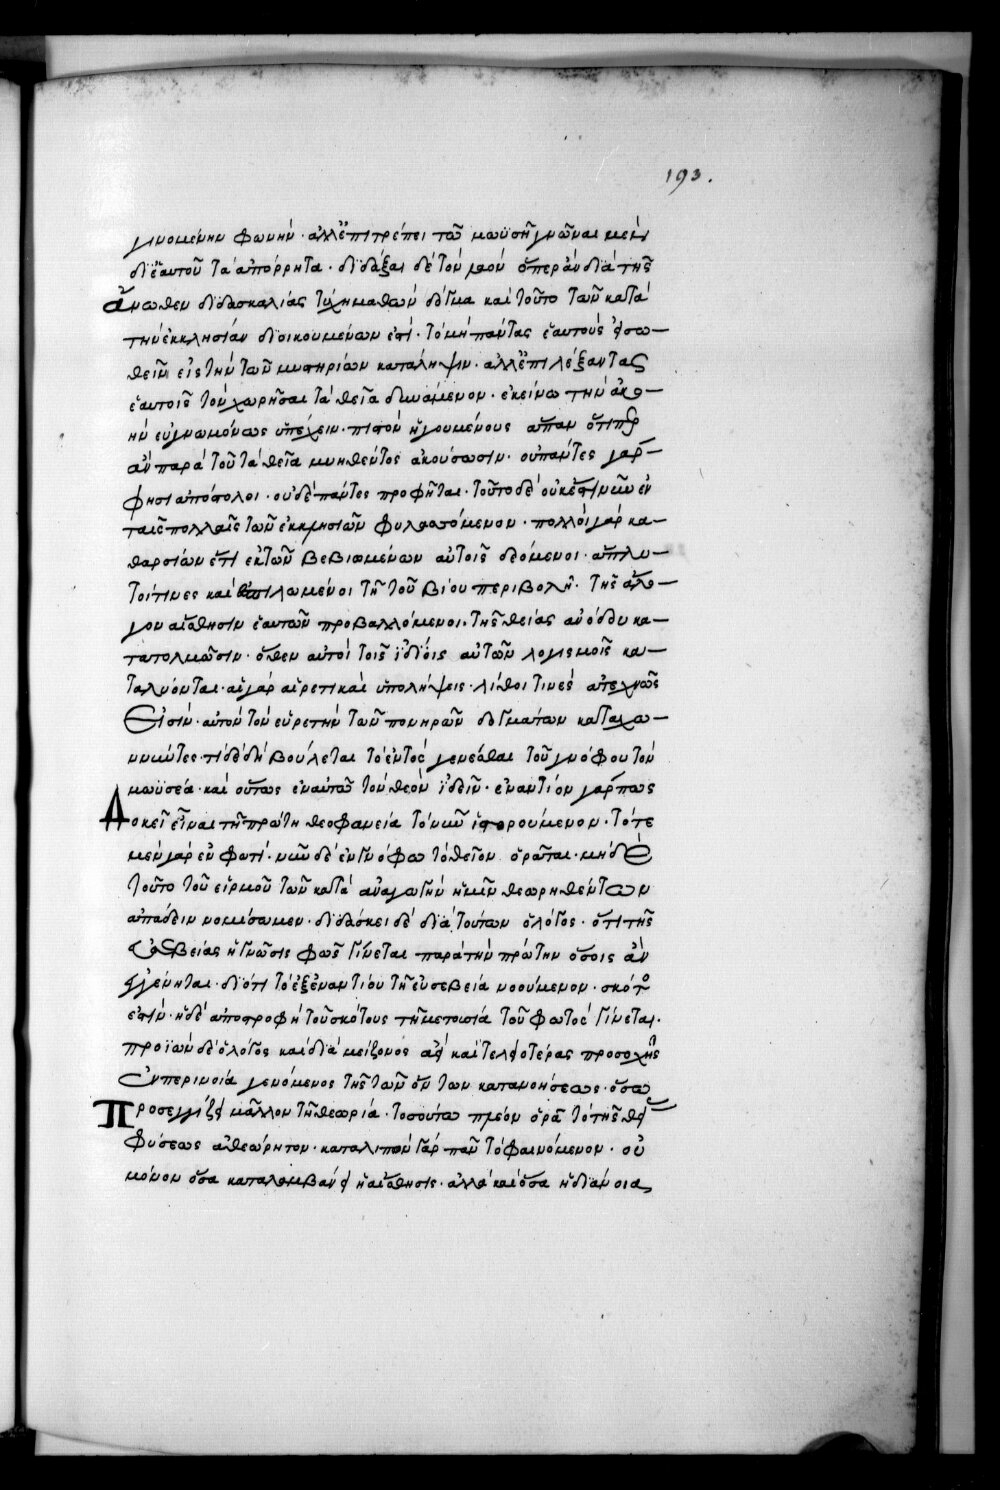 193.
γινομένην φωνήν· ἀλλ' ἐπιτρέπει τῶ μωϋσῆ γνῶναι μὲν
δι' ἑαυτοῦ τὰ ἀπόρρητα· διδάξαι δὲ τὸν λαὸν ὅπερ ἂν διὰ τῆς
ἄνωθεν διδασκαλίας τύχη μαθὼν δόγμα καὶ τοῦτο τῶν κατὰ
τὴν ἐκκλησίαν διοικουμένων ἐστί· τὸ μὴ πάντας ἑαυτοὺς εἰσω-
θεῖν εἰς τὴν τῶν μυστηρίων κατάληψιν· ἀλλ' ἐπιλέξαντας
ἑαυτοῖς τὸν χωρῆσαι τὰ θεῖα δυνάμενον· ἐκείνω τὴν ἀκο-
ὴν εὐγνωμόνως ὑπέχειν· πιστὸν ἡγουμένους ἅπαν ὅτιπερ
ἂν παρὰ τοῦ τὰ θεῖα μυηθέντος ἀκούσωσιν· οὐ πάντες γάρ
φησι ἀπόστολοι· οὐδὲ πάντες προφῆται· τοῦτο δὲ οὐκ ἔστι νῦν ἐν
ταῖς πολλαῖς τῶν ἐκκλησιῶν φυλασσόμενον· πολλοὶ γὰρ κα-
θαρσίων ἔτι ἐκ τῶν βεβιωμένων αὐτοῖς δεόμενοι· ἄπλυ-
τοί τινες καὶ ἐσπιλωμένοι τῆ τοῦ βίου περιβολῆ· τῆς ἀλό-
γον αἴσθησιν ἑαυτῶν προβαλλόμενοι· τῆς θείας ἀνόδου κα-
τατολμῶσιν· ὅθεν αὐτοὶ τοῖς ἰδίοις αὐτῶν λογισμοῖς κα-
ταλύονται· αἱ γὰρ αἱρετικαὶ ὑπολήψεις· λίθοι τινὲς ἀτεχνῶς
Εἰσίν· αὐτὸν τὸν εὑρετὴν τῶν πονηρῶν δογμάτων καταχω-
ννύντες· τί δὲ δὴ βούλεται τὸ ἐντὸς γενέσθαι τοῦ γνόφου τὸν
μωϋσέα· καὶ οὕτως ἐν αὐτῶ τὸν θεὸν ἰδεῖν· ἐναντίον γάρ πως
Δοκεῖ εἶναι τῆ πρώτη θεοφανεία τὸ νῦν ἱστορούμενον· τότε
μὲν γὰρ ἐν φωτί· νῦν δὲ ἐν γνόφω τὸ θεῖον ὁρᾶται· μηδὲ
τοῦτο τοῦ εἱρμοῦ τῶν κατὰ ἀναγωγὴν ἡμῖν θεωρηθέντων
ἀπάδειν νομίσωμεν· διδάσκει δὲ διὰ τούτων ὁ λόγος· ὅτι τῆς
εὐσεβείας ἡ γνῶσις φῶς γίνεται παρὰ τὴν πρώτην ὅσοις ἂν
ἐγγένηται· διότι τὸ ἐξ ἐναντίου τῆ εὐσεβεία νοούμενον· σκότος
ἐστίν· ἡ δὲ ἀποστροφὴ τοῦ σκότους τῆ μετουσία τοῦ φωτὸς γίνεται·
προϊὼν δὲ ὁ λόγος καὶ διὰ μείζονος ἀεὶ καὶ τελειοτέρας προσοχῆς
ἐν περινοία γενόμενος τῆς τῶν ὄντων κατανοήσεως· ὅσω
Προσεγγίζει μᾶλλον τῆ θεωρία· τοσούτω πλέον ὁρᾶ τὸ τῆς θείας
φύσεως ἀθεώρητον· καταλιπὸν γὰρ πᾶν τὸ φαινόμενον· οὐ
μόνον ὅσα καταλαμβάνει ἡ αἴσθησις· ἀλλὰ καὶ ὅσα ἡ διάνοια